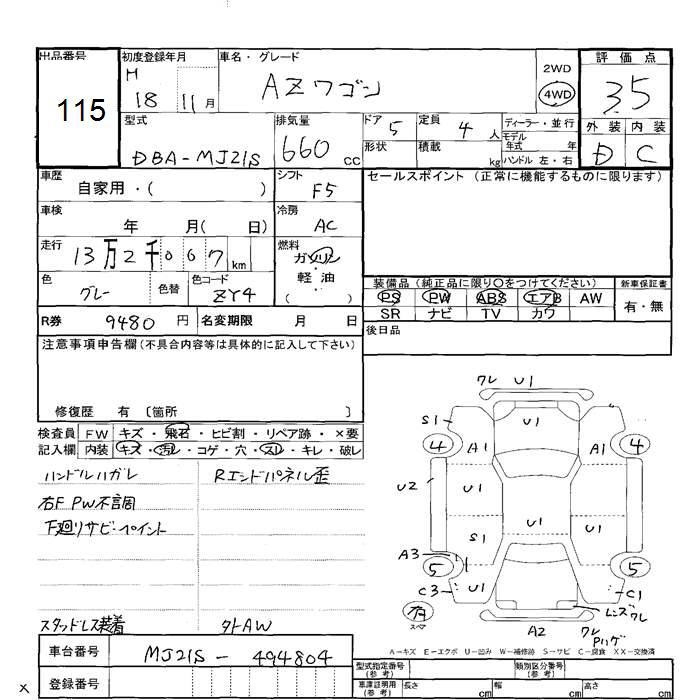 出品番号 115
初度登録年月 H 18 11月
車名・グレード AZワゴン
2WD 4WD
評価点 3.5
外装 D 内装 C
型式 DBA-MJ21S
排気量 660 cc
ドア 5
形状
定員 4人
積載 kg
ディーラー・並行
モデル年式 年
ハンドル 左・右
車歴 自家用・( )
シフト F5
セールスポイント (正常に機能するものに限ります)
車検 年 月( 日)
冷房 AC
走行 13万2千067 km
燃料 ガソリン 軽油 ( )
色 グレー
色替
色コード ZY4
装備品 (純正品に限り○をつけてください)
新車保証書 有・無
PS PW ABS エアB AW
SR ナビ TV カワ
R券 9480 円
名変期限 月 日
後日品
注意事項申告欄(不具合内容等は具体的に記入して下さい)
修復歴 有 〔箇所 〕
検査員記入欄
FW キズ・飛石・ヒビ割・リペア跡・×要
内装 キズ・汚レ・コゲ・穴・スレ・キレ・破レ
ハンドルハガレ
Rエンドパネル歪
右F PW不調
下廻リサビ・ペイント
スタッドレス装着
外AW
ワレ U1
S1
U1
4
A1
A1
4
U2
U1
S1
U1
U1
A3
5
5
C3
U1
C1
有
スペア
レンズワレ
A2
ワレ
ハゲ
A-キズ E-エクボ U-凹み W-補修跡 S-サビ C-腐食 XX-交換済
車台番号 MJ21S-494804
登録番号
型式指定番号 (参考)
類別区分番号 (参考)
車庫証明用 (参考) 長さ cm 幅 cm 高さ cm
x